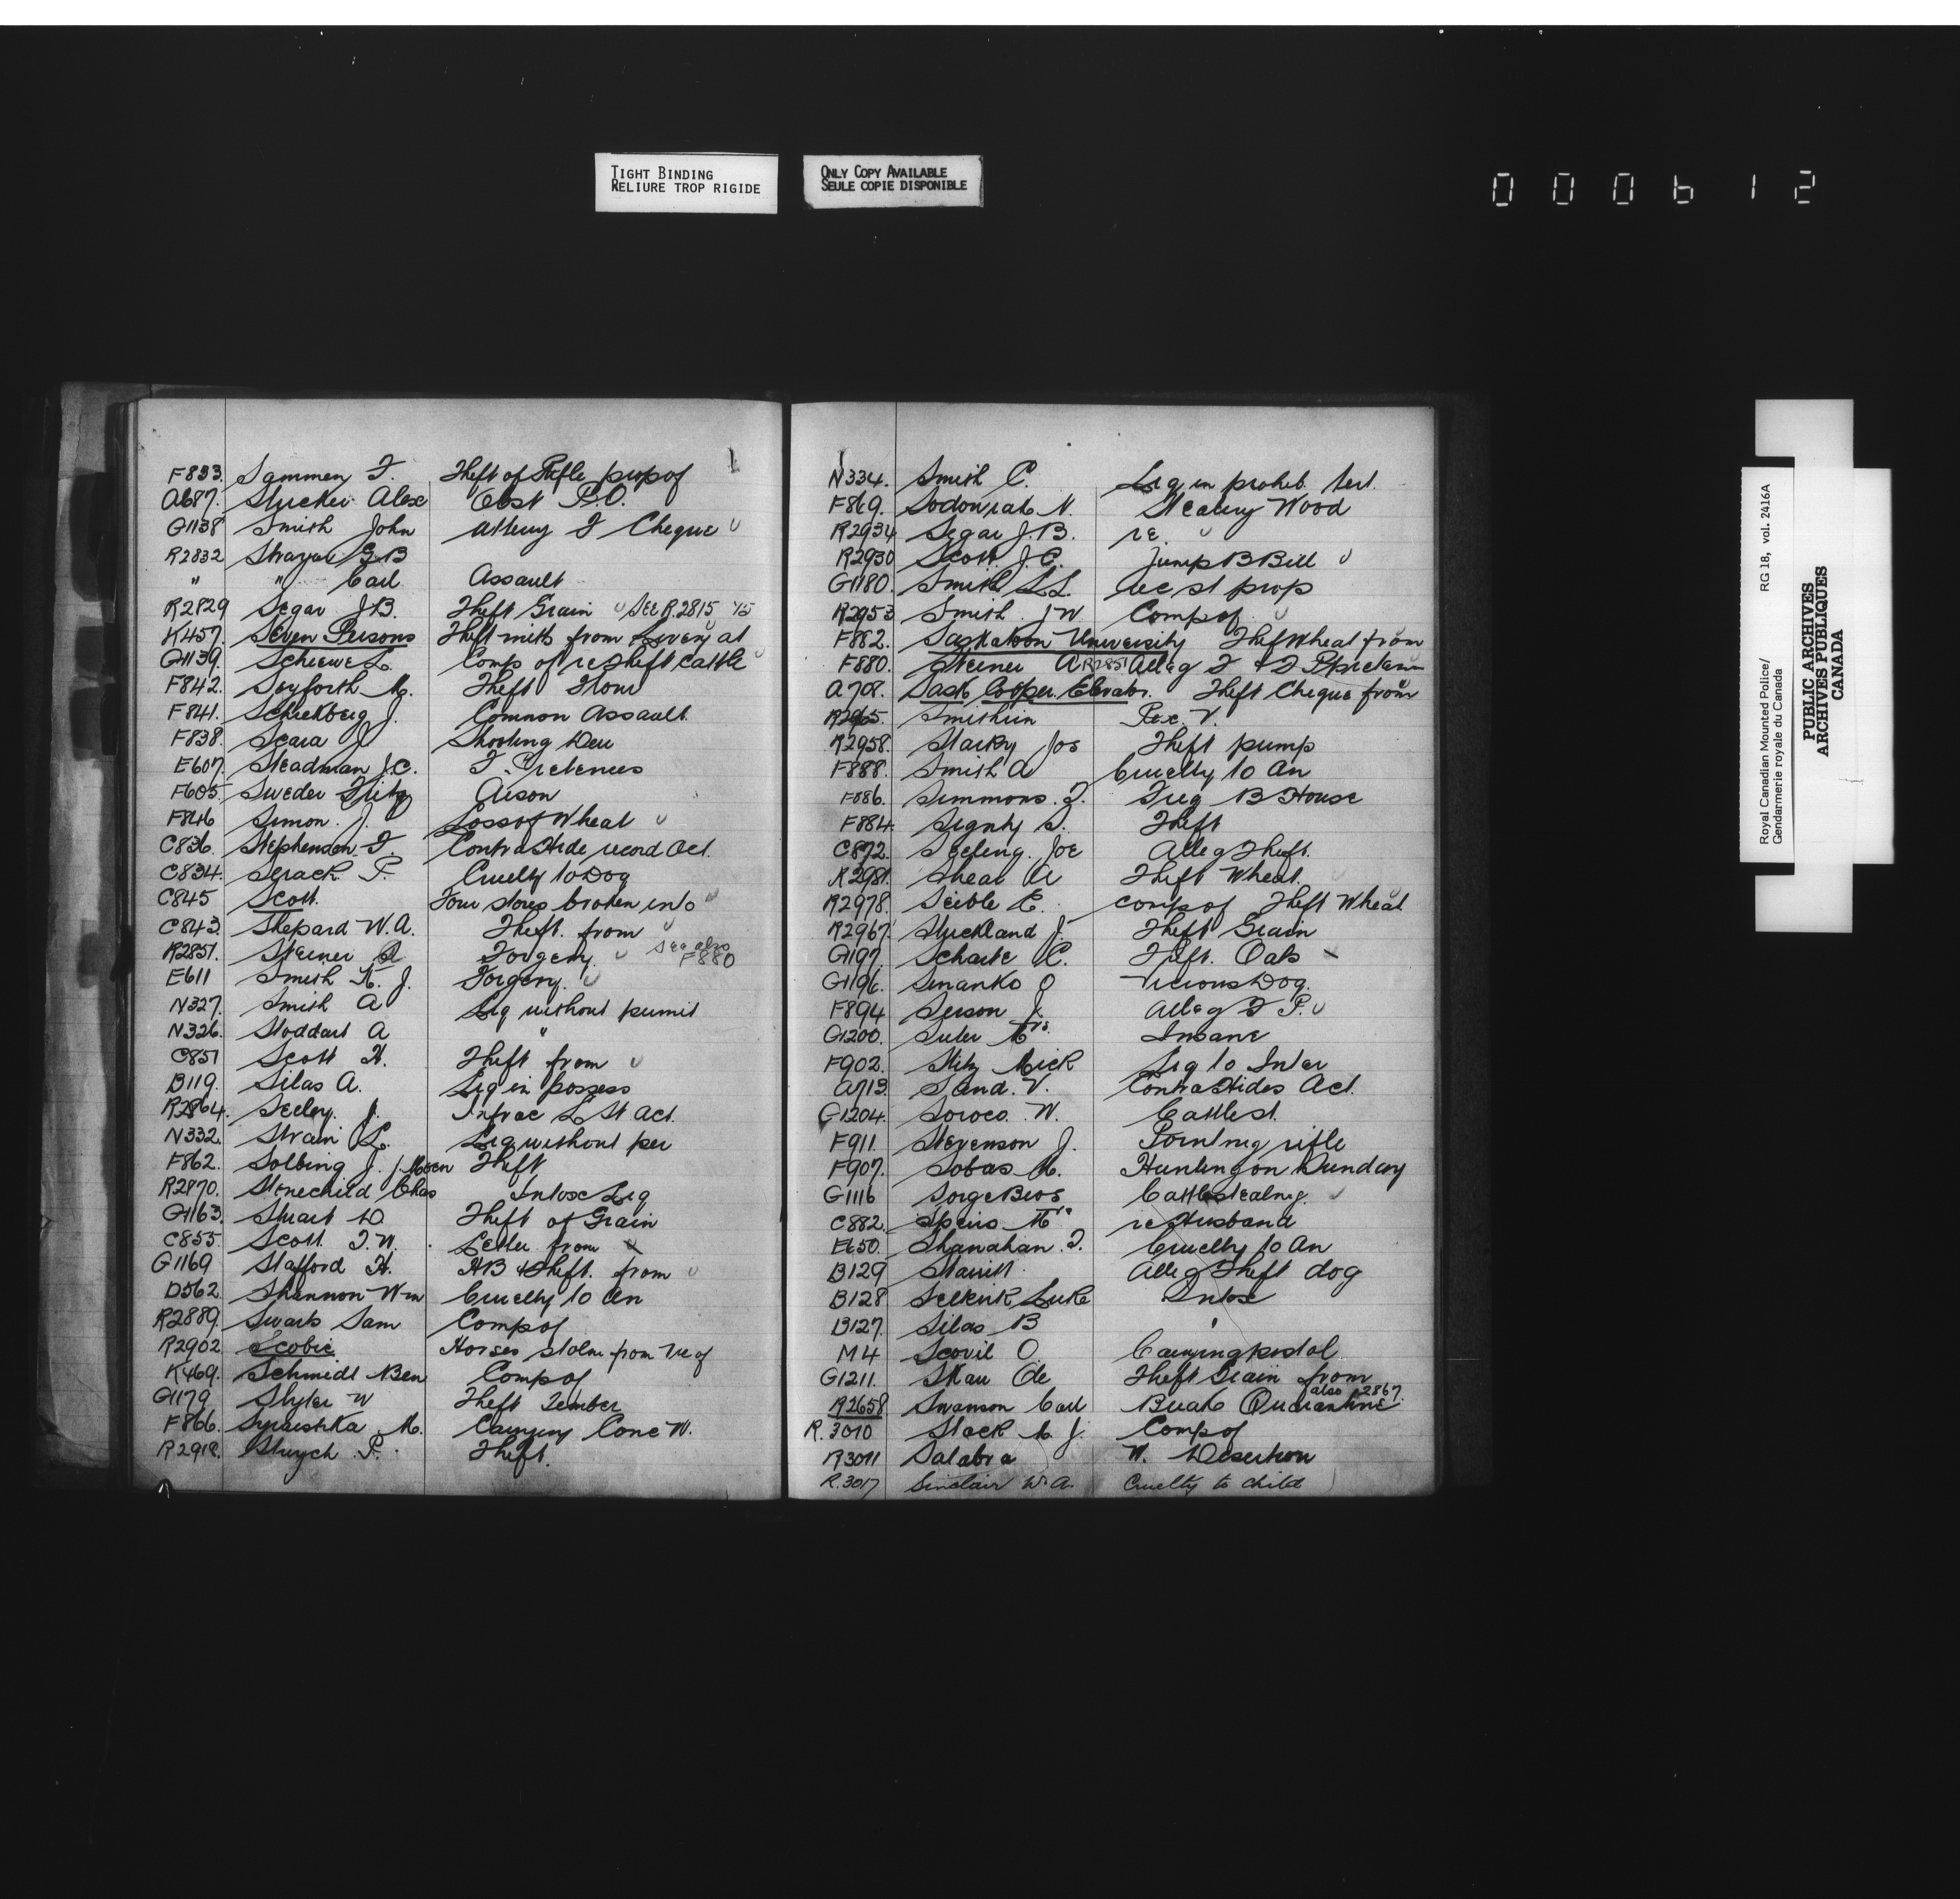 TIGHT BINDING
RELIURE TROP RIGIDE
ONLY COPY AVAILABLE
SEULE COPIE DISPONIBLE
000612
F833. Sammen F. Theft of Rifle prop of
A687. Stucker Alex Obst P.O.
G1138 Smith John Attemp F Cheque
R2832 G B
" " Carl Assault
R2829 Segar J.B. Theft Grain See R.2815 '15
K457. Seven Persons Theft mits from Livery at
G1139. Schiewe L. Comp of re theft cattle
F842. Seyforth M. Theft Flour
F841. Schekberg J. Common Assault.
F838. Scara J. Shooting Deer
E607. Steadman J.C. F. Pretences
F605. Sweder Fritz Arson
F846 Simon. J. Loss of Wheat
C836. Stephenson F. Contra Hide record Act.
C834. P. Cruelty to Dog
C845 Scott. Four stores broken into
C843. Shepard W.A. Theft. from
R2851. Sterner A Forgery. See also F880
E611 Smith K. J. Forgery.
N327. Smith A Liq without permit
N326. Stoddart A "
C851 Scott H. Theft from
B119. Silas A. Liq in possess
R2864. Seeley. J. Infrac L St Act.
N332. Strain L. Liq without per
F862. Solbing J. J. Moen Theft
R2870. Stonechild Chas Intox Liq
G1163. Stuart D Theft of Grain
C855. Scott T.W. Letter from
G1169 Stafford H. HB & Theft. from
D562. Shannon Wm Cruelty to An
R2889. Swarts Sam Comp of
R2902. Scobie Horses stolen from Vic of
K469. Schmidt Ben Comp of
G1179 Slyter W Theft Timber
F866. M. Carrying Conc W.
R2918. Strych P. Theft.
N334. Smith C. Liq in prohib. terr.
F869. N. Stealing Wood
R2934 Segar J.B. re.
R2930 Scott J.C. Jump B Bill
G1180. Smith L.L. rec st prop
R2953 Smith J W Comp of
F882. Saskatoon University Theft Wheat from
F880. Sterner A R2851 Alleg F & F P
A708. Sask Cooper. Elevator. Theft Cheque from
R2965. Smithrin Rex. V.
R2958. Starky Jos Theft pump
F888. Smith A Cruelty to An
F886. Simmons. F. Freq B House
F884. S. Theft
C872. Seeling. Joe Alleg Theft.
R2981. Shear A Theft Wheat.
R2978. Seible E. comp of Theft Wheat
R2967. Stuckland J. Theft Grain
G1197. C. Theft. Oats
G1196. Smanko O Vicious Dog.
F894 Serson J. Alleg F P.
G1200. Suter Mrs. Insane
F902. Stitz Mick Liq to Inter
A713. Sand. V. Contra Hides Act.
G1204. Soroco. W. Cattle st.
F911. Stevenson J. Pointing rifle
F907. Sobas M. Hunting on Sunday
G1116 Sorge Bros Cattle stealing.
C882. Speirs Mrs re Husband
E650. Shanahan. T. Cruelty to An
B129 Alleg Theft dog
B128 Selkirk Luke Intox
B127. Silas B '
M4 Scovil O Carrying pistol
G1211. Skau Ole Theft Grain from
R2658 Swanson Carl Break Quarantine also 2867.
R. 3010 Stack M. J. Comp of
R3011 Salabra W. Desertion
R. 3017 Sinclair W. A. Cruelty to child
Royal Canadian Mounted Police/
Gendarmerie royale du Canada
RG 18, vol. 2416A
PUBLIC ARCHIVES
ARCHIVES PUBLIQUES
CANADA